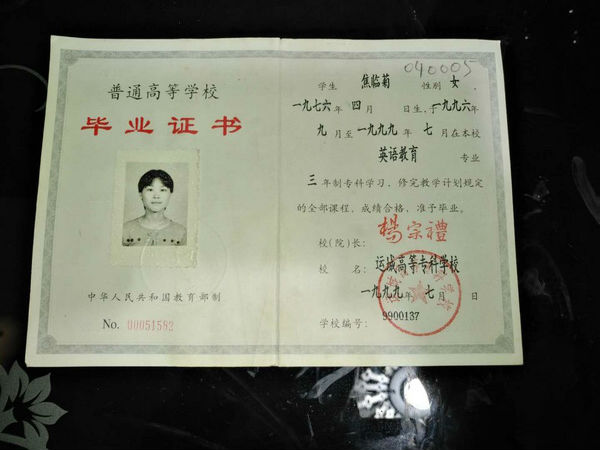 普通高等学校
毕业证书
中华人民共和国教育部制
No. 00051582
040005
学生 焦临菊 性别 女
一九七六年 四 月 日生,于一九九六年
九 月至一九九九年 七 月在本校
英语教育 专业
三 年制专科学习,修完教学计划规定
的全部课程,成绩合格,准予毕业。
校(院)长: 楊宗禮
校 名: 运城高等专科学校
一九九九年 七 月 日
学校编号: 9900137